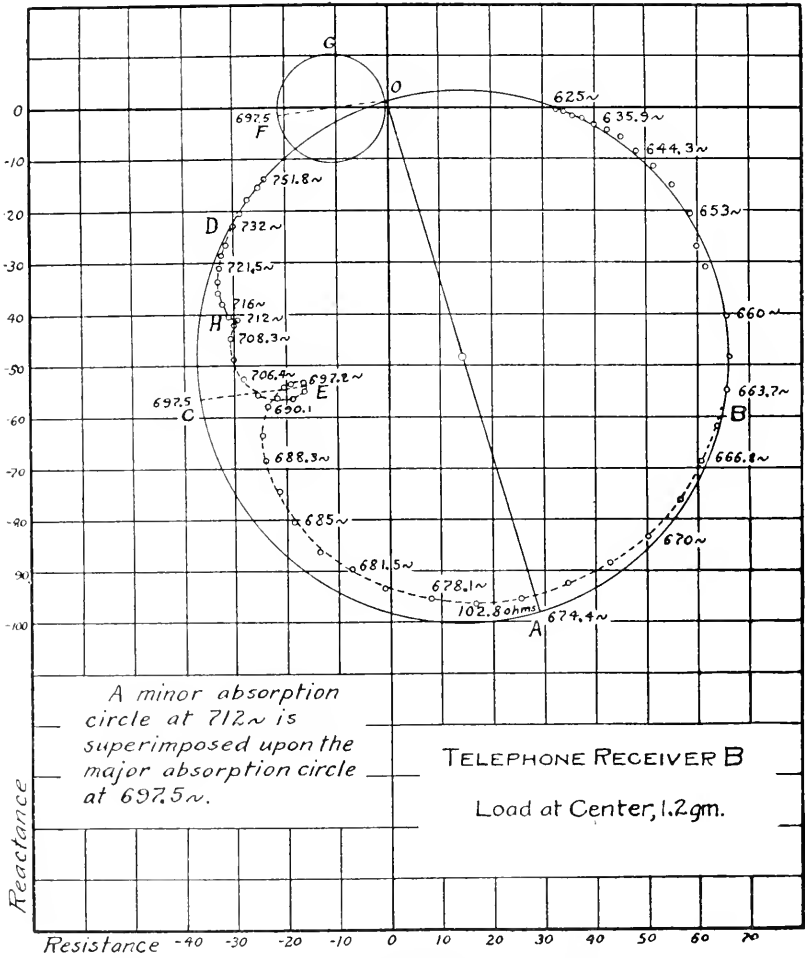 G
O
0
625~
635.9~
697.5
F
644.3~
-10
751.8~
653~
-20
D
732~
-30
721.5~
716~
660~
-40
H
712~
708.3~
-50
706.4~
697.2~
697.5
E
663.7~
C
690.1
B
-60
688.3~
666.8~
-70
-80
685~
670~
681.5~
-90
678.1~
102.8 ohms
-100
A
674.4~
A minor absorption
circle at 712~ is
superimposed upon the
major absorption circle
at 697.5~.
TELEPHONE RECEIVER B
Load at Center, 1.2gm.
Reactance
Resistance -40 -30 -20 -10 0 10 20 30 40 50 60 70